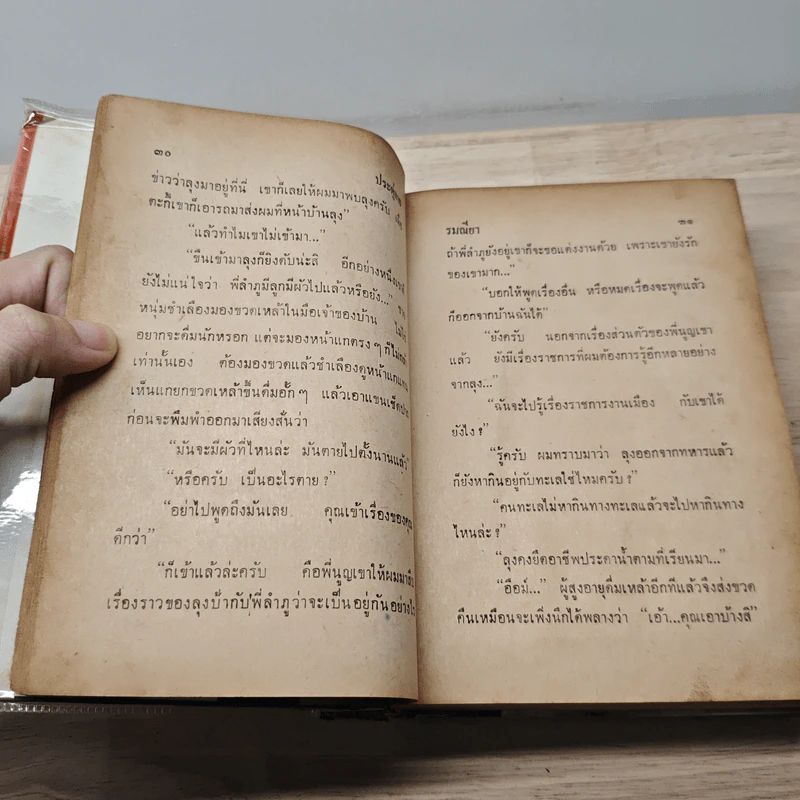 ๓๐
ข่าวว่าลุงมาอยู่ที่นี่ เขาก็เลยให้ผมมาพบลุงครับ
ตะกี้เขาก็เอารถมาส่งผมที่หน้าบ้านลุง”
“แล้วทำไมเขาไม่เข้ามา...”
“ขืนเข้ามาลุงก็ยิงดับน่ะสิ อีกอย่างหนึ่ง
ยังไม่แน่ใจว่า พี่ลำภูมีลูกมีผัวไปแล้วหรือยัง...”
หนุ่มชำเลืองมองขวดเหล้าในมือเจ้าของบ้าน
อยากจะดื่มนักหรอก แต่จะมองหน้าแกตรงๆ ก็
เท่านั้นเอง ต้องมองขวดแล้วชำเลืองดูหน้าแก
เห็นแกยกขวดเหล้าขึ้นดื่มอั้กๆ แล้วเอาแขนเช็ด
ก่อนจะพึมพำออกมาเสียงสั่นว่า
“มันจะมีผัวที่ไหนล่ะ มันตายไปตั้งนานแล้ว”
“หรือครับ เป็นอะไรตาย ?”
“อย่าไปพูดถึงมันเลย คุณเข้าเรื่องของคุณ
ดีกว่า”
“ก็เข้าแล้วล่ะครับ คือพี่นูญเขาให้ผมมา
เรื่องราวของลุงป้ากับพี่ลำภูว่าจะเป็นอยู่กันอย่างไร
รมณียา ๓๑
ถ้าพี่ลำภูยังอยู่เขาก็จะขอแต่งงานด้วย เพราะเขายังรัก
ของเขามาก...”
“บอกให้พูดเรื่องอื่น หรือหมดเรื่องจะพูดแล้ว
ก็ออกจากบ้านฉันได้”
“ยังครับ นอกจากเรื่องส่วนตัวของพี่นูญเขา
แล้ว ยังมีเรื่องราชการที่ผมต้องการรู้อีกหลายอย่าง
จากลุง...”
“ฉันจะไปรู้เรื่องราชการงานเมือง กับเขาได้
ยังไง ?”
“รู้ครับ ผมทราบมาว่า ลุงออกจากทหารแล้ว
ก็ยังหากินอยู่กับทะเลใช่ไหมครับ ?”
“คนทะเลไม่หากินทางทะเลแล้วจะไปหากินทาง
ไหนล่ะ ?”
“ลุงคงยึดอาชีพประดาน้ำตามที่เรียนมา...”
“อือม์...” ผู้สูงอายุดื่มเหล้าอีกทีแล้วจึงส่งขวด
คืนเหมือนจะเพิ่งนึกได้พลางว่า “เอ้า...คุณเอาบ้างสิ”